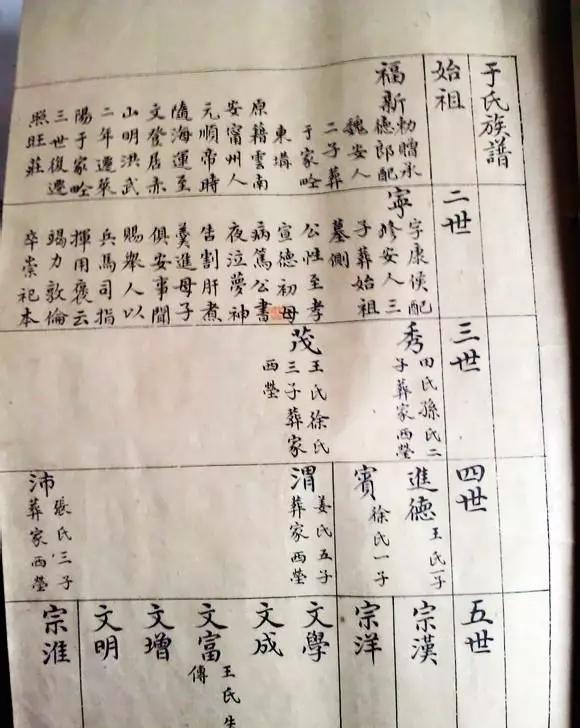 于氏族譜
始祖
福新
勅贈承
德郎配
魏安人
二子葬
于家
東
原籍雲南
安甯州人
元順帝時
隨海運至
文登居赤
山明洪武
二年遷萊
陽于家
三世復遷
照旺莊
二世
寧
字康侯配
安人三
子葬始祖
墓側
公性至孝
宣德初母
病篤公書
夜泣夢神
告割肝煮
羮進母子
俱安事聞
賜舉人以
兵馬司指
揮用褒云
竭力敦倫
卒崇祀本
三世
秀
田氏孫氏二
子葬家西塋
茂
王氏徐氏
三子葬家
西塋
四世
進德
王氏一子
賓
徐氏一子
渭
姜氏五子
葬家西塋
沛
張氏三子
葬家西塋
五世
宗漢
宗洋
文學
文成
文富
王氏生
傳
文增
文明
宗淮